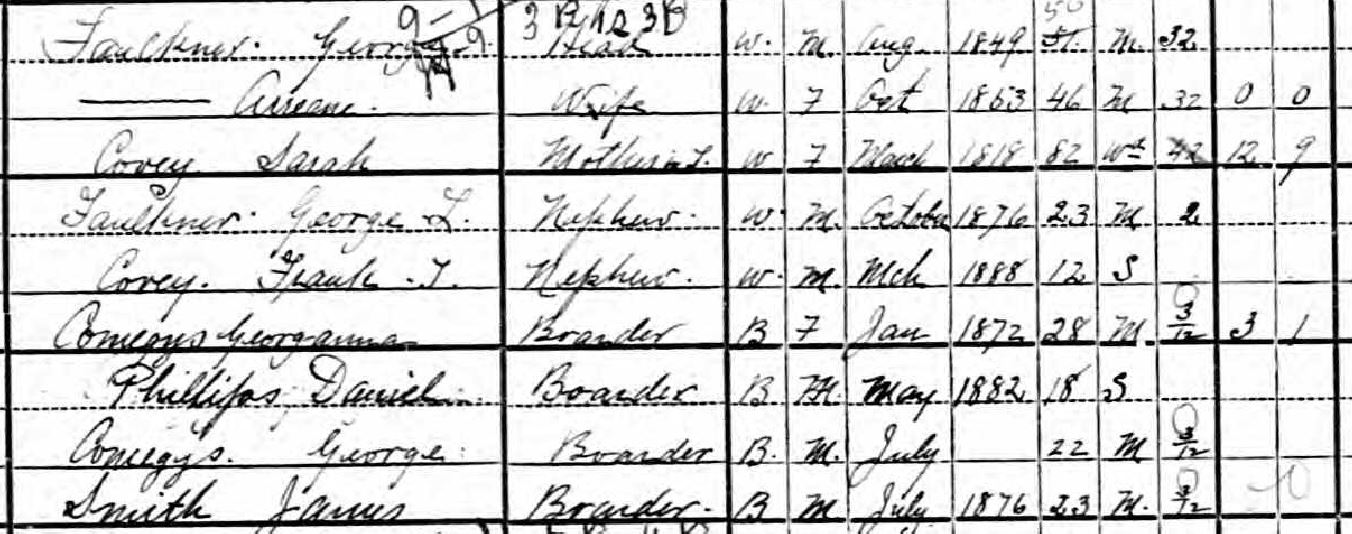 3 B 1 2 3 B
Faulkner. George Head W. M. Aug 1849 51 50 M. 32
——— Head Wife W. F Oct 1853 46 M 32 0 0
Covey. Sarah Mother in L. W F March 1818 82 Wd 42 12 9
Faulkner. George L. Nephew. W. M. October 1876 23 M 2
Covey. Frank T. Nephew. W. M. Mch 1888 12 S
Comegys Georganna Boarder B F Jan 1872 28 M 3/12 0 3 1
Phillips, Daniel Boarder B. M. May 1882 18 S
Comegys. George Boarder B. M. July 22 M 3/12 0
Smith James Boarder. B M July 1876 23 M. 3/12 0 0